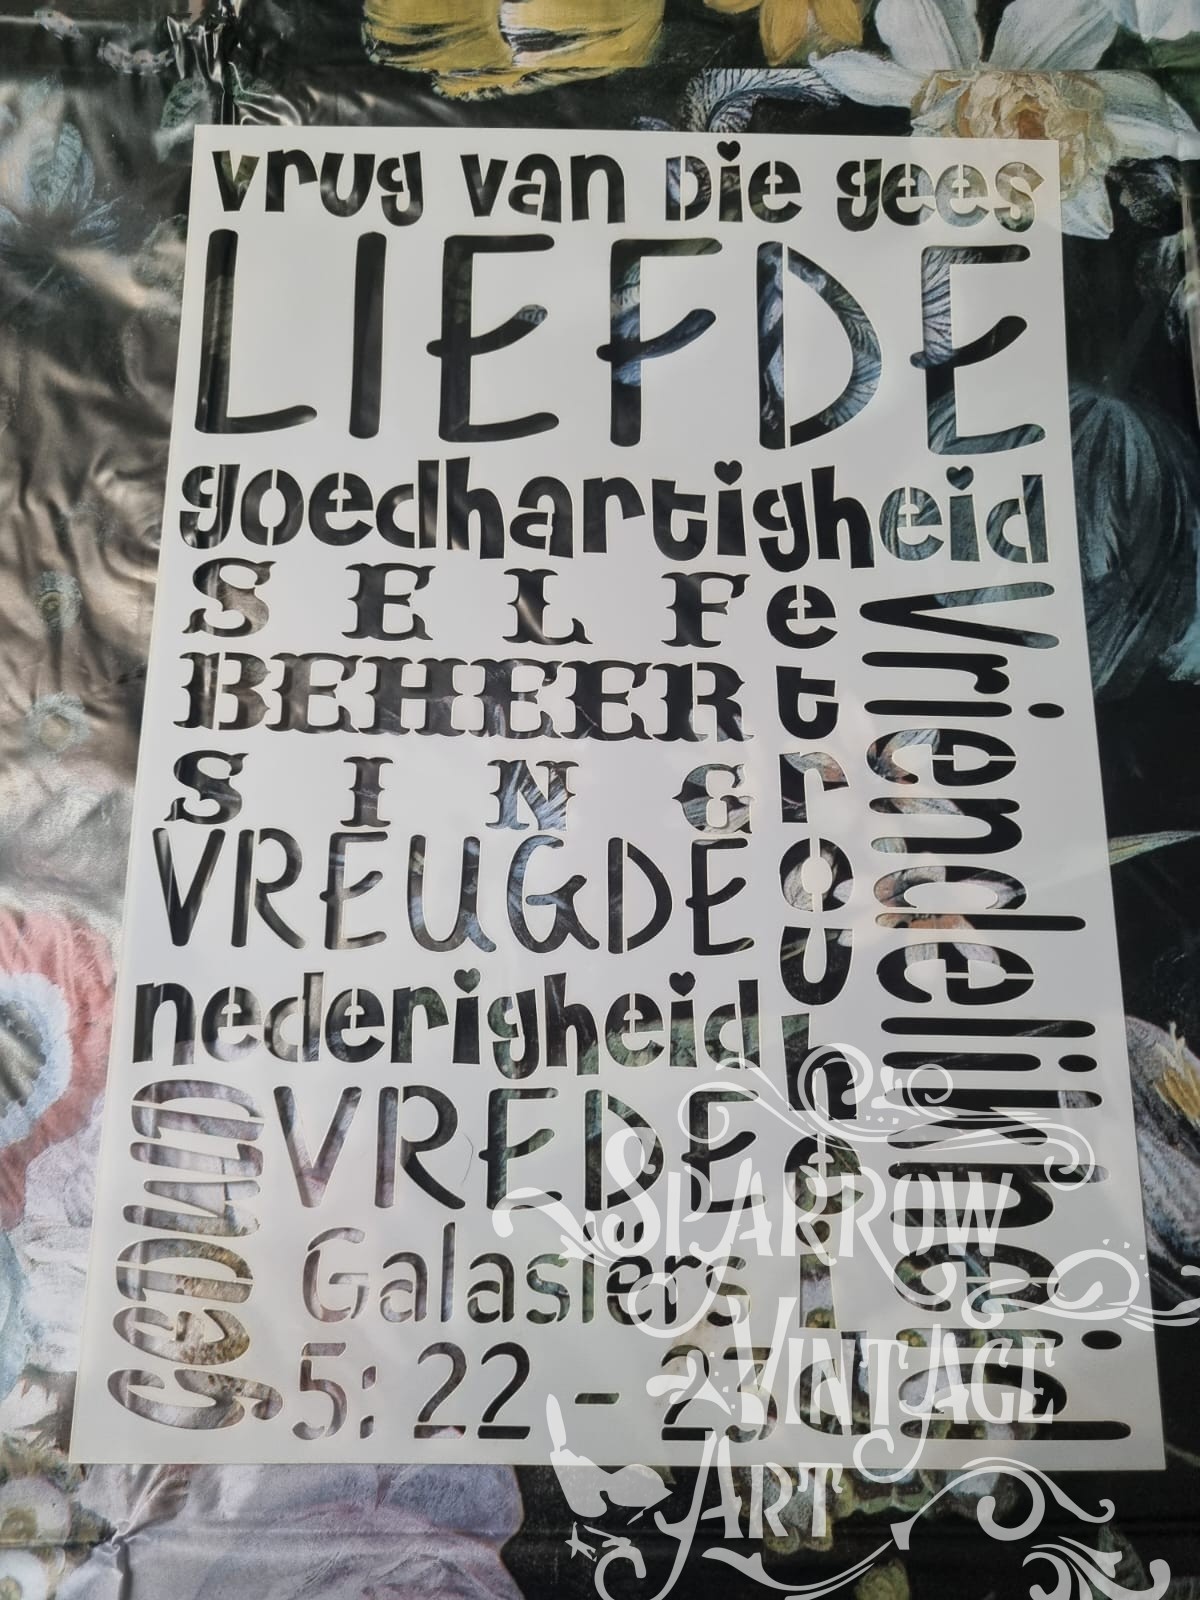 vrug van die gees
LIEFDE
goedhartigheid
SELF
BEHEER
SING
VREUGDE
nederigheid
VREDE
GEDULD
Galasiërs
5: 22 - 23
etrouheid
Vriendelikheid
SPARROW
VINTAGE
ART